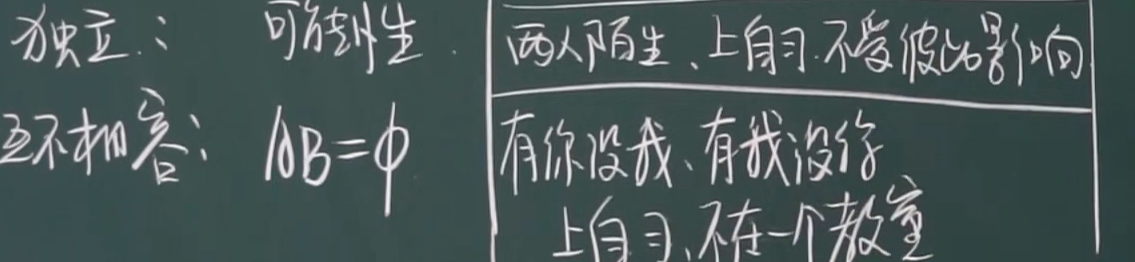 独立： 可能性. 两人陌生、上自习.不受彼此影响
互不相容： AB=φ 有你没我、有我没你
上自习、不在一个教室